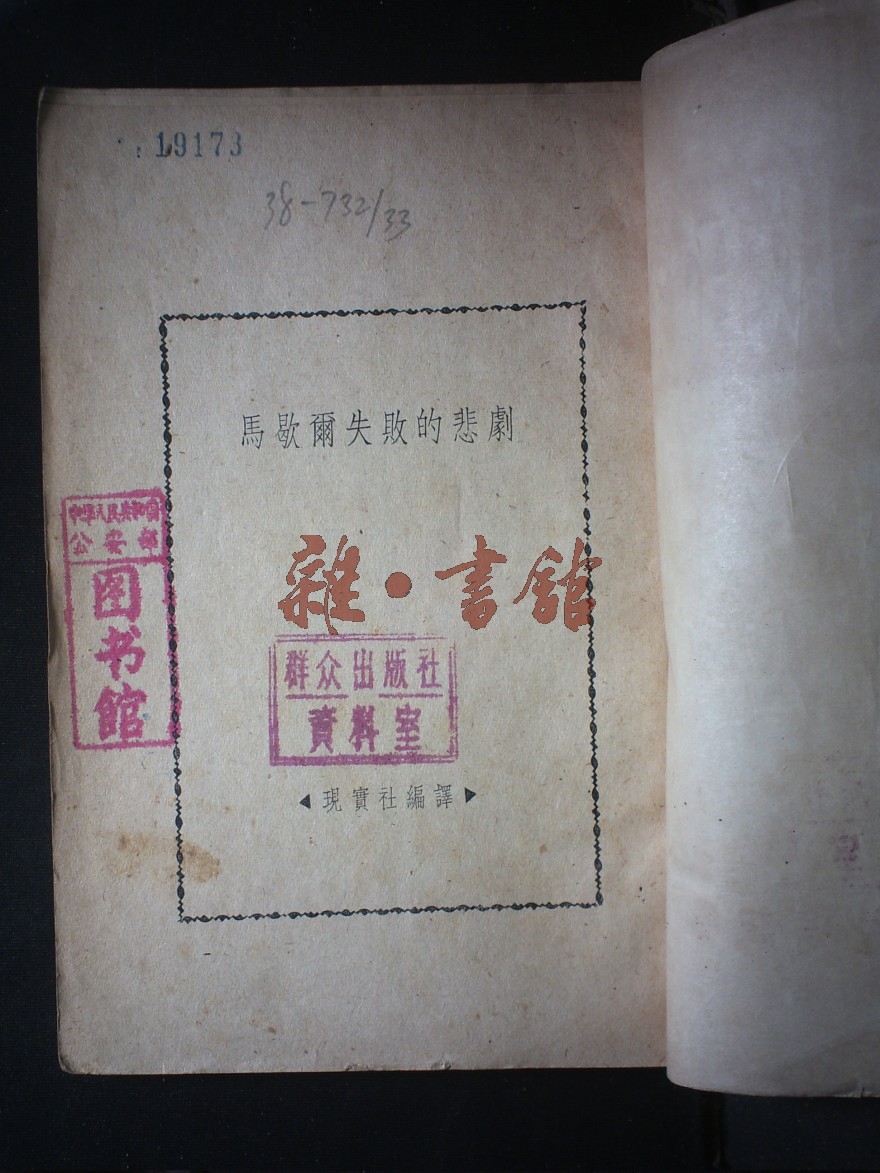 19173
38-732/33
馬歇爾失敗的悲劇
中华人民共和国
公安部
图书馆
雜·書館
群众出版社
資料室
現實社編譯